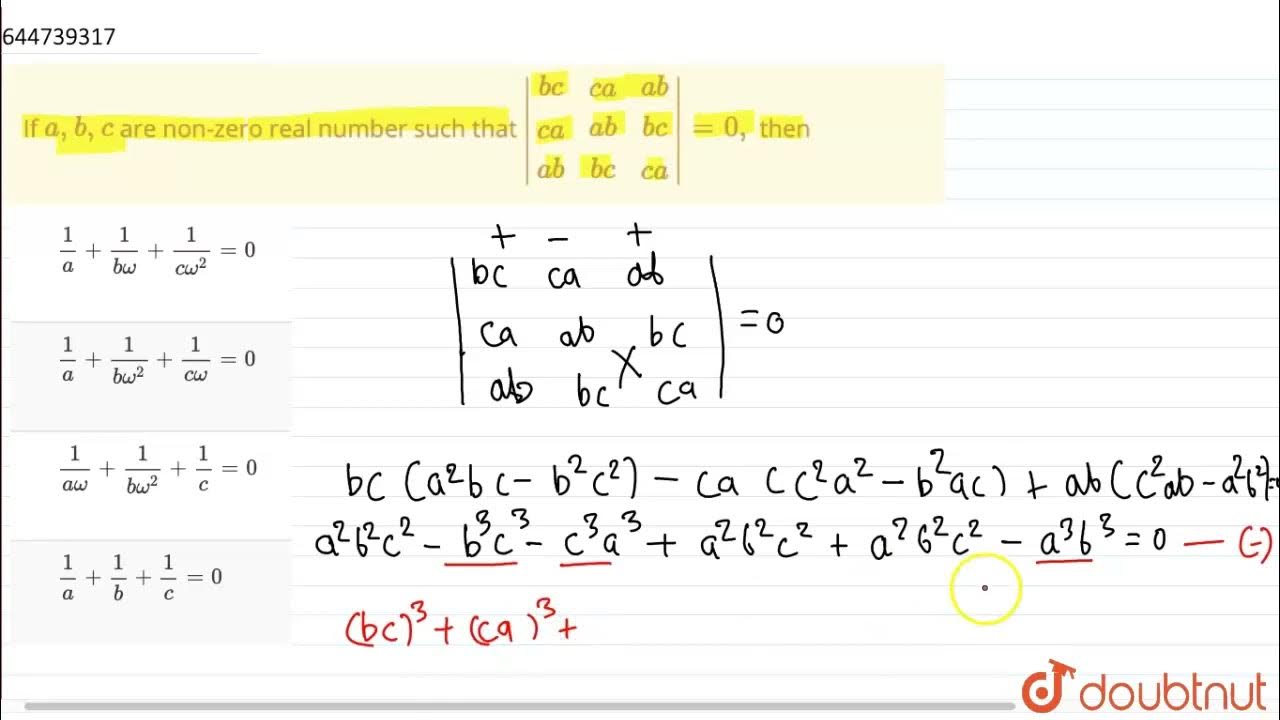 644739317
If a, b, c are non-zero real number such that | bc ca ab | = 0, then
| ca ab bc |
| ab bc ca |
1/a + 1/bω + 1/cω² = 0
1/a + 1/bω² + 1/cω = 0
1/aω + 1/bω² + 1/c = 0
1/a + 1/b + 1/c = 0
+ − +
| bc ca ab |
| ca ab bc | = 0
| ab bc ca |
bc (a²bc − b²c²) − ca (c²a² − b²ac) + ab (c²ab − a²b²)=0
a²b²c² − b³c³ − c³a³ + a²b²c² + a²b²c² − a³b³ = 0 — (-)
(bc)³ + (ca)³ +
doubtnut